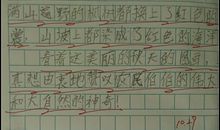 满山遍野的树叶都换上了红色的
裳，山坡上都变成了红色的海洋
看着这美丽的秋天的图画，
真想由衷地赞叹农民伯伯的伟大
和大自然的神奇！
10+9